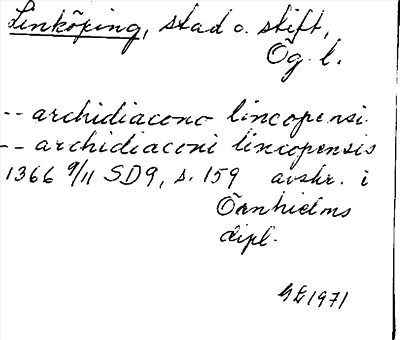 Linköping, stad o. stift,
Ög. l.
-- archidiacono lincopensi.
-- archidiaconi lincopensis
1366 9/11 SD9, s. 159 avskr. i
Örnhielms
dipl.
GL 1971